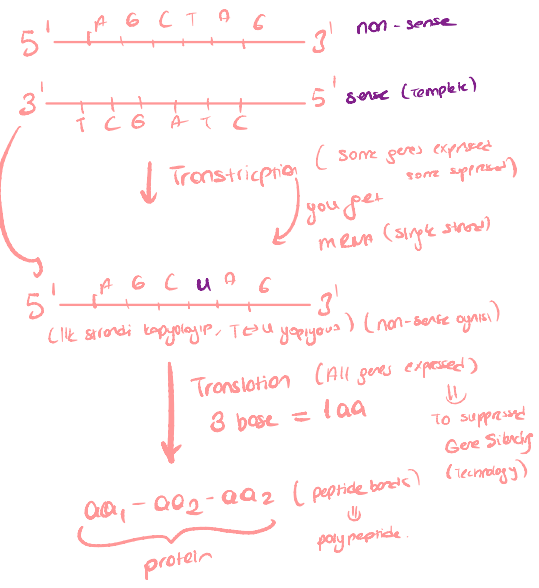 A G C T A G
5' 3' non-sense
3' 5' sense (Template)
T C G A T C
Transtricption (some genes expressed
some suppressed)
you get
mRNA (single strand)
A G C U A G
5' 3'
(ilk strandi kopyalayıp, T↔U yapıyoruz) (non-sense aynısı)
Translation (All genes expressed)
3 base = 1aa
To suppressed
Gene Silencing
(Technology)
aa1 - aa2 - aa2 (peptide bonds)
polypeptide.
protein